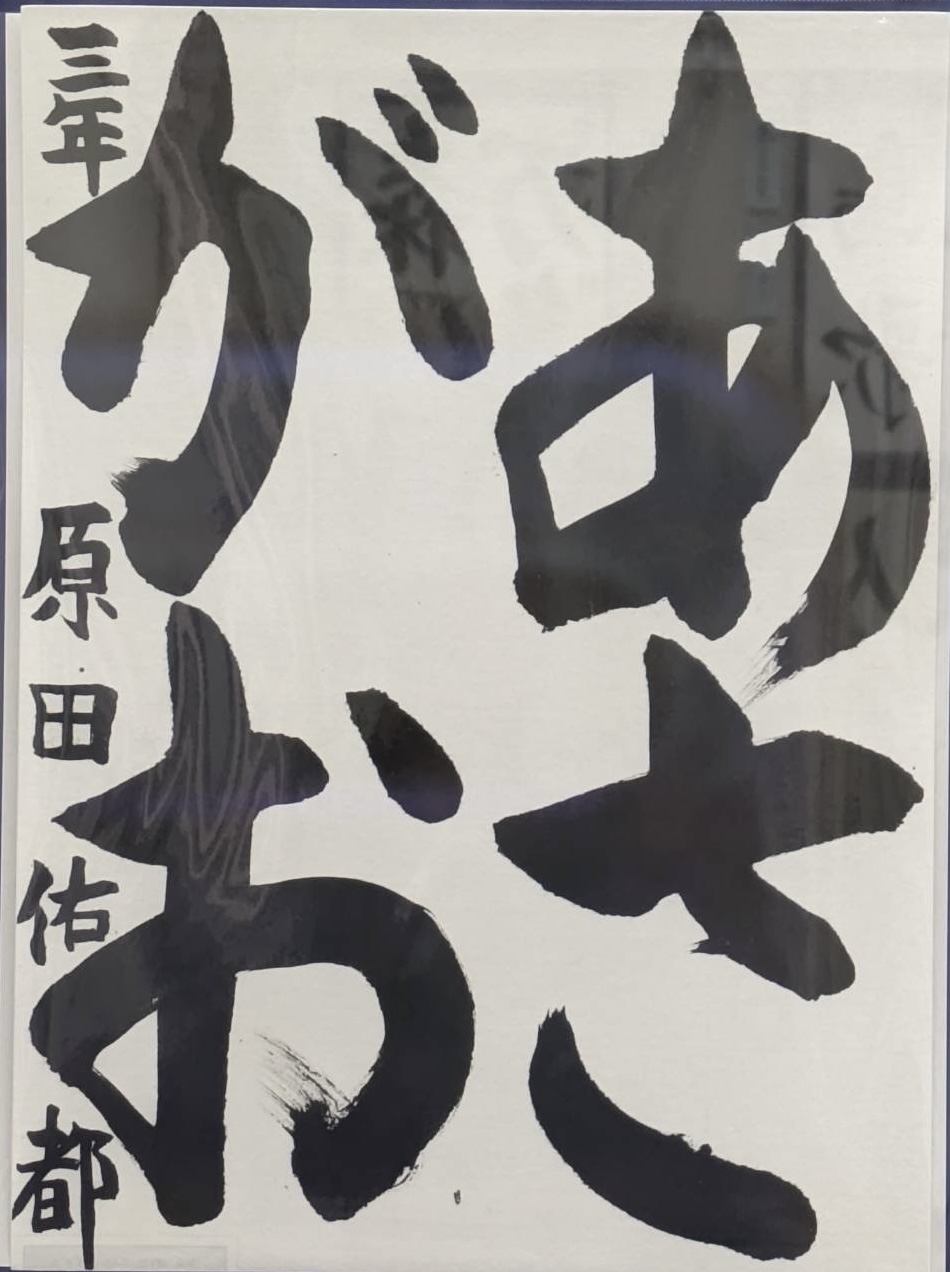 あさ
がお
三年 原田佑都